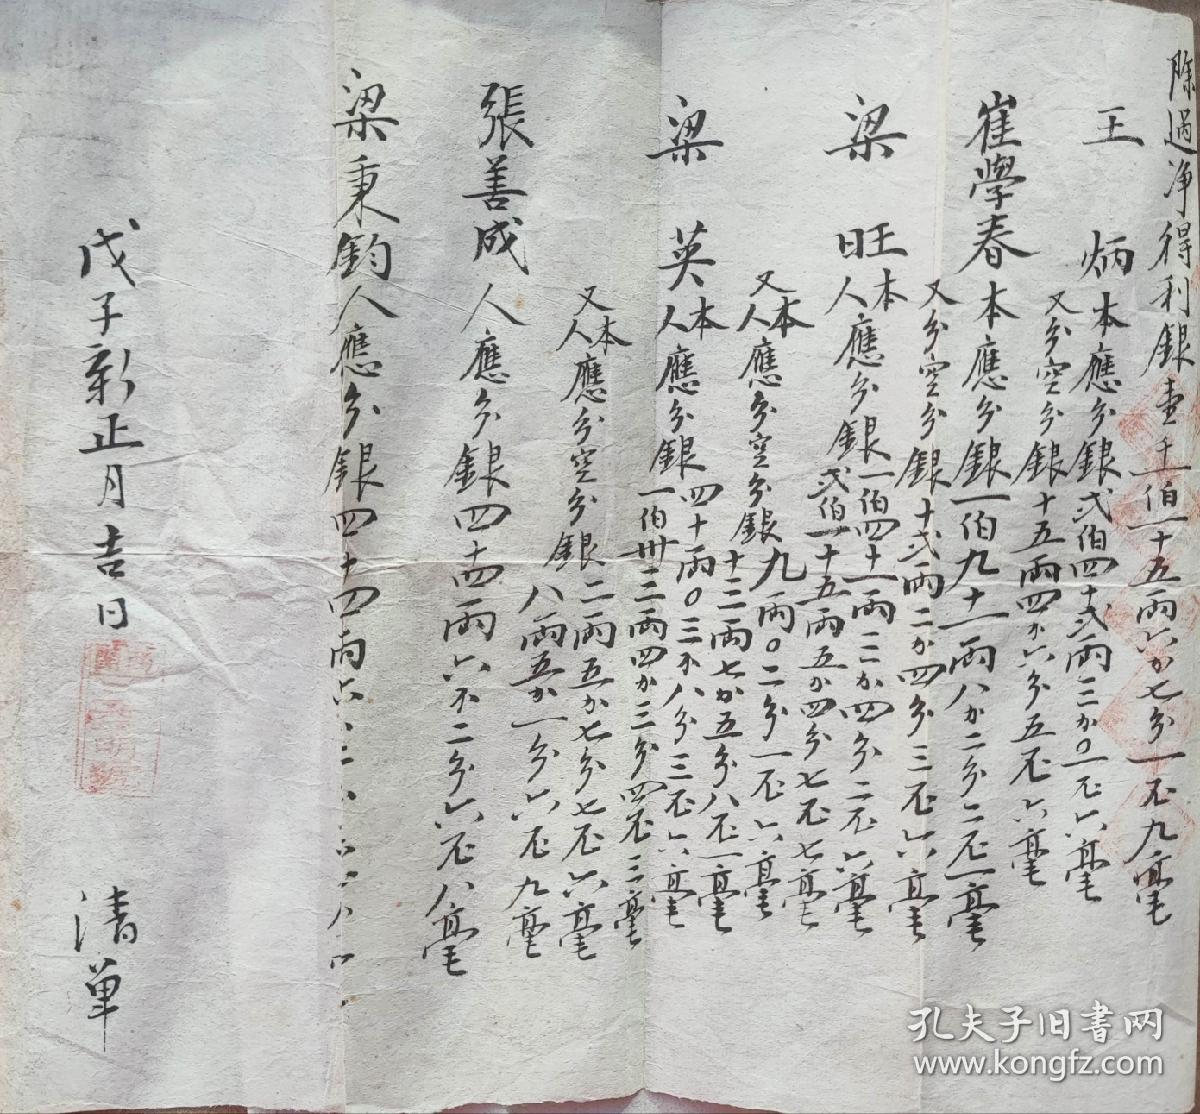 除過净得利銀壹千一伯一十五両六分七分一厘九毫
王炳本應分銀弍伯四十弍両三分〇一厘六毫
又分空分銀十五両四分六分五厘六毫
崔學春本應分銀一伯九十一両八分二分二厘一毫
又分空分銀十弍両二分四分三厘六毫
梁旺本人應分銀一伯四十一両三分四分二厘六毫
弍伯一十五両五分四分七厘七毫
又本人應分空分銀九両〇二分一厘六毫
十二両七分五分八厘一毫
梁英本人應分銀四十両〇三分八分三厘六毫
一伯卅三両四分三分四厘三毫
又本人應分空分銀二両五分七分七厘六毫
八両五分一分六厘九毫
張善成人應分銀四十四両六分二分六厘八毫
梁秉鈞人應分銀四十四両六
戊子新正月吉日
清单
孔夫子旧书网
www.kongfz.com